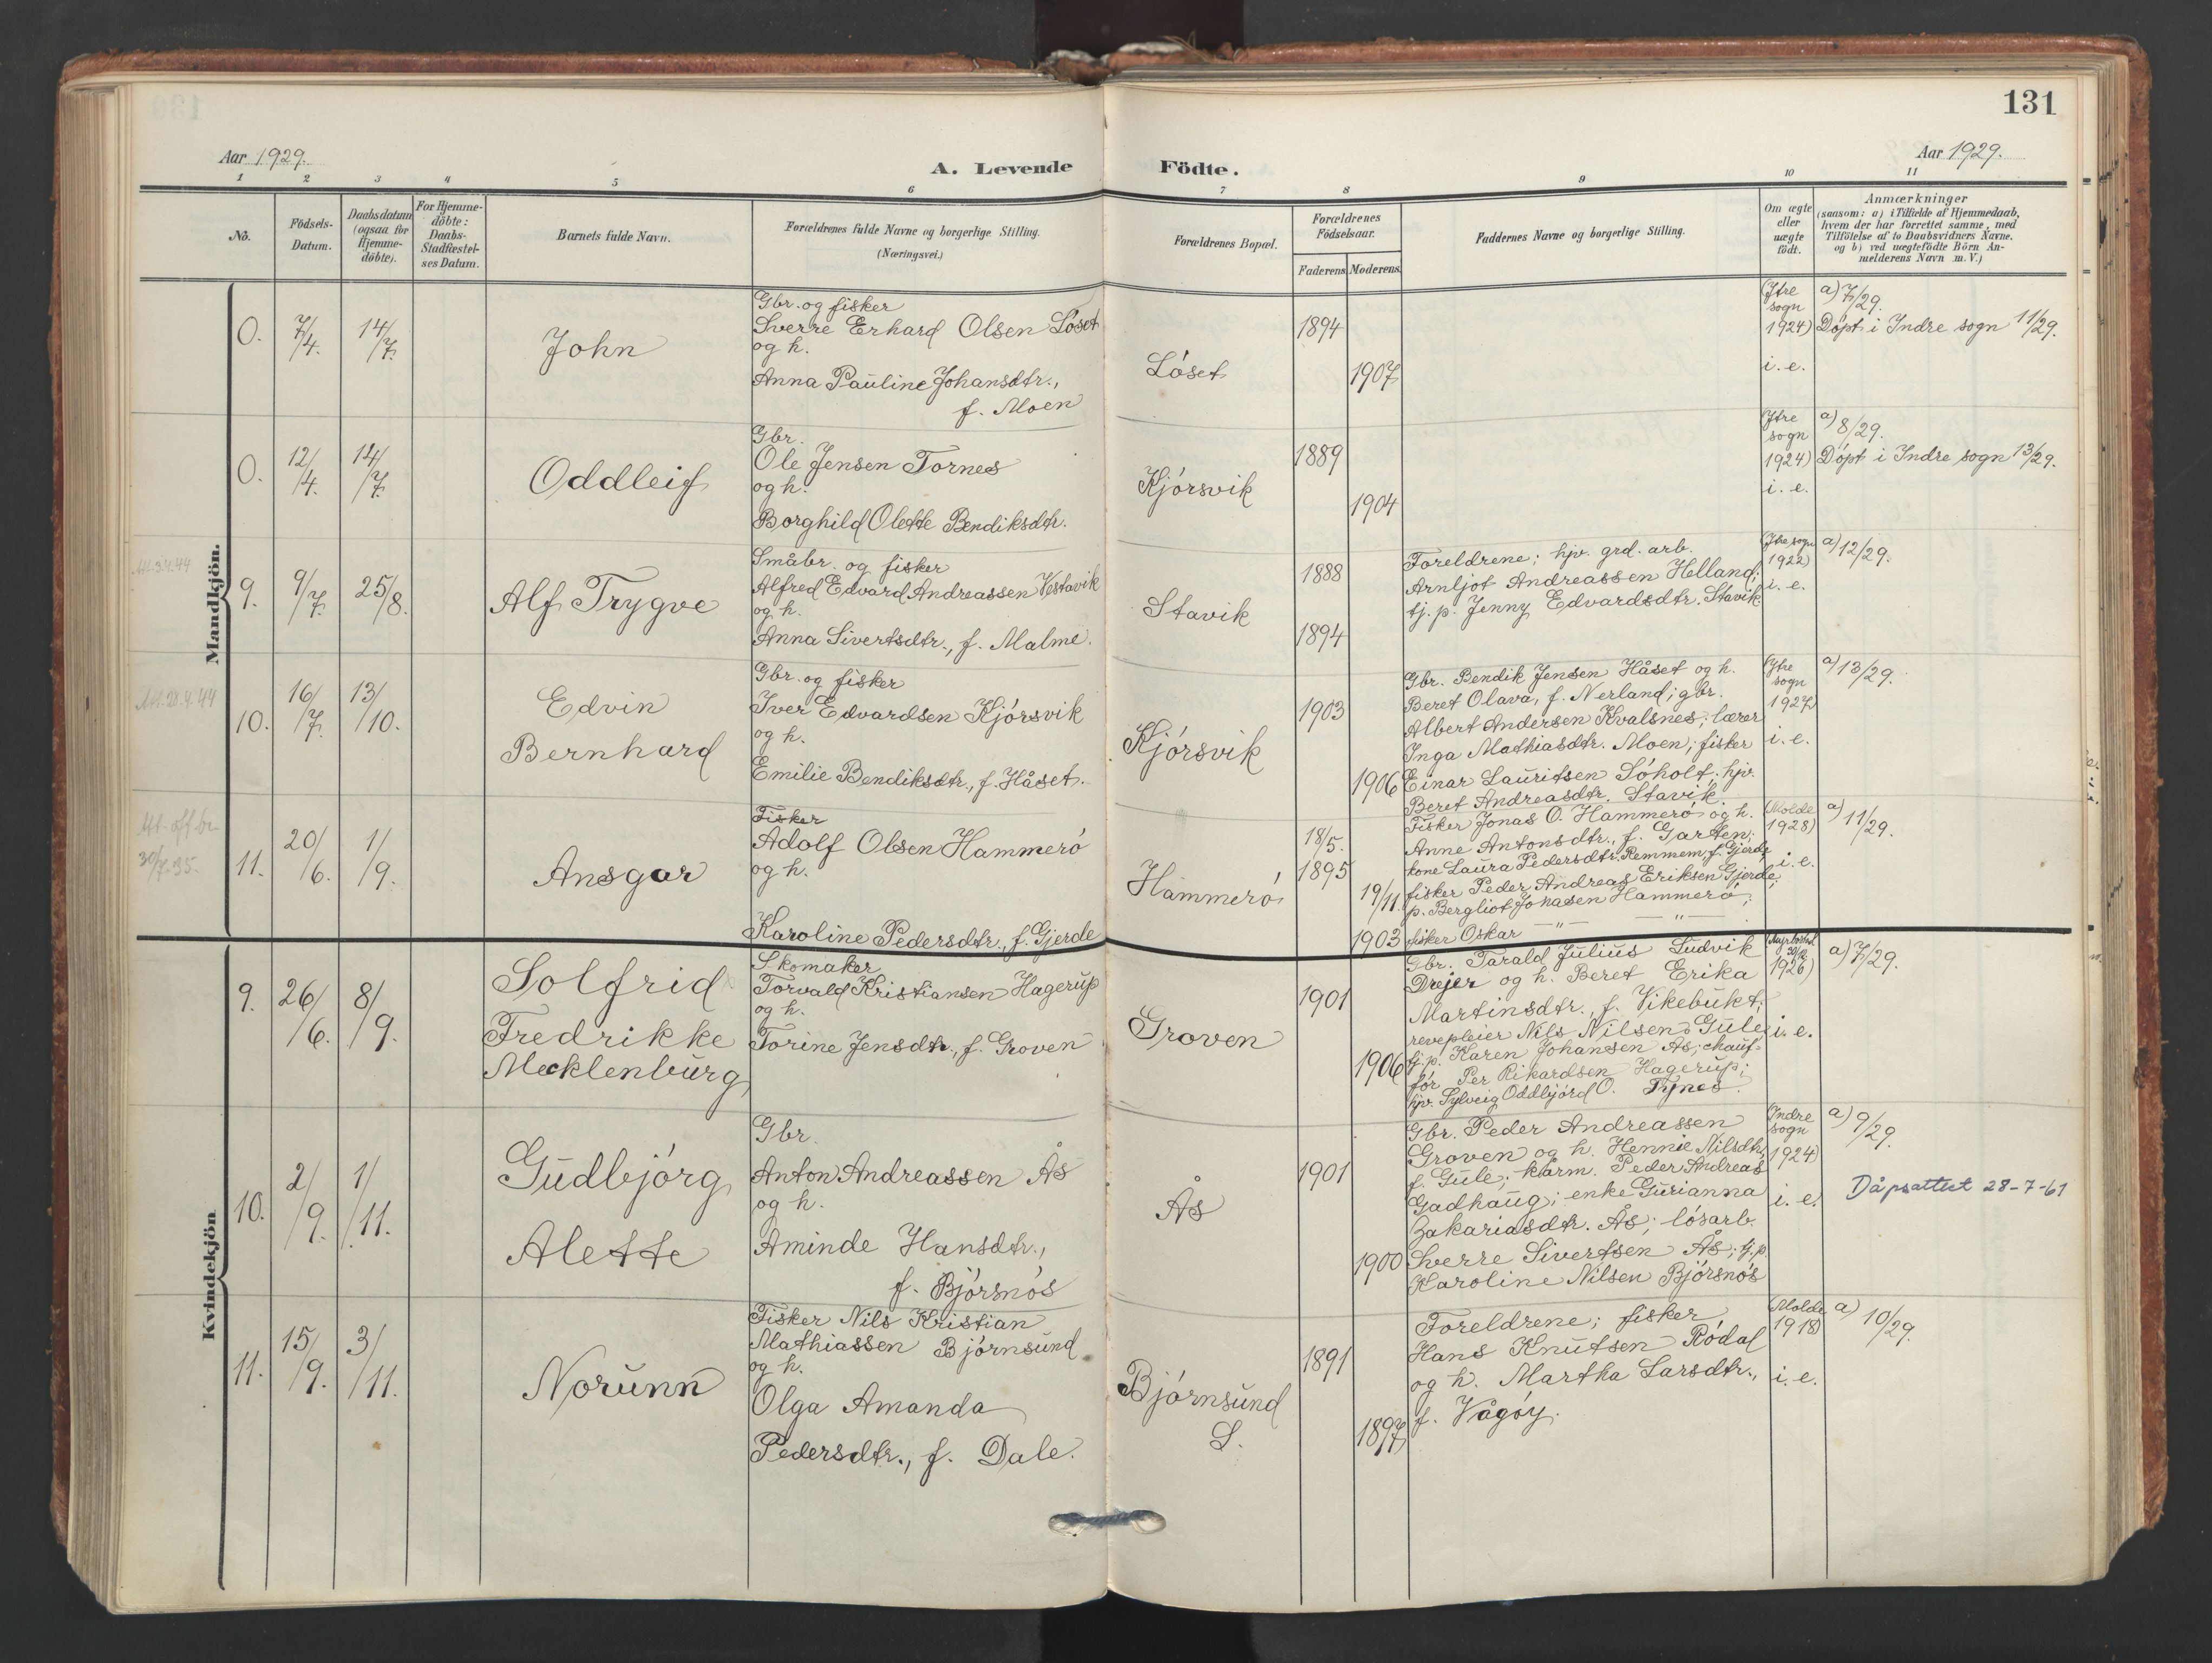 131
Aar 1929.
A. Levende Födte.
Aar 1929.
1 2 3 4 5 6 7 8 9 10 11
No.
Födsels-
Datum.
Daabsdatum
(ogsaa for
Hjemme-
döbte).
For Hjemme-
döbte:
Daabs-
Stadfæstel-
ses Datum.
Barnets fulde Navn.
Forældrenes fulde Navne og borgerlige Stilling.
(Næringsvei.)
Forældrenes Bopæl.
Forældrenes
Födselsaar.
Faderens Moderens
Faddernes Navne og borgerlige Stilling.
Om ægte
eller
uægte
födt.
Anmærkninger
(saasom: a) i Tilfælde af Hjemmedaab,
hvem der har forrettet samme, med
Tilföielse af to Daabsvidners Navne,
og b) ved uægtefödte Börn An-
melderens Navn m. V.)
Mandkjön.
0.
7/4.
14/7.
John
Gbr. og fisker
Sverre Erhard Olsen Löset
og h.
Anna Pauline Johansdtr.,
f. Moen
Löset
1894
1907
(Ytre
sogn
1924)
i. e.
a) 7/29.
Döpt i Indre sogn 11/29.
0.
12/4.
14/7.
Oddleif
Gbr.
Ole Jensen Tornes
og h.
Borghild Olette Bendiksdtr.
Kjörsvik
1889
1904
(Ytre
sogn
1924)
i. e.
a) 8/29.
Döpt i Indre sogn 13/29.
9.
9/7.
25/8.
Alf Trygve
Småbr. og fisker
Alfred Edvard Andreassen Vestavik
og h.
Anna Sivertsdtr., f. Malme.
Stavik
1888
1894
Foreldrene; hjv. grd. arb.
Arnljot Andreassen Helland;
tj. p. Jenny Edvardsdtr. Stavik.
(Ytre sogn
1922)
i. e.
a) 12/29.
10.
16/7.
13/10.
Edvin
Bernhard
Gbr. og fisker
Iver Edvardsen Kjörsvik
og h.
Emilie Bendiksdtr., f. Håset.
Kjörsvik
1903
1906
Gbr. Bendik Jensen Håset og h.
Beret Olava, f. Nerland; gbr.
Albert Andersen Kvalsnes; lærer
Inga Mathiasdtr. Moen; fisker
Einar Lauritsen Söholt; hjv.
Beret Andreasdtr. Stavik.
(Ytre
sogn
1927)
i. e.
a) 13/29.
11.
20/6.
1/9.
Ansgar
Fisker
Adolf Olsen Hammerö
og h.
Karoline Pedersdtr., f. Gjerde
Hammerö
18/5.
1895
19/11.
1903
Fisker Jonas O. Hammerö og h.
Anne Antonsdtr., f. Garten;
kone Laura Pedersdtr. Remmem, f. Gjerde
fisker Peder Andreas Eriksen Gjerde;
p. Bergliot Johasen Hammerö;
fisker Oskar —"— —"—
(Molde
1928)
i. e.
a) 11/29.
Kvindekjön
9.
26/6.
8/9.
Solfrid
Fredrikke
Mecklenburg
Skomaker
Torvald Kristiansen Hagerup
og h.
Torine Jensdtr., f. Groven
Groven
1901
1906
Gbr. Tarald Julius Ludvik
Drejer og h. Beret Erika
Martinsdtr., f. Vikebukt;
revepleier Nils Nilsen Gule;
tj. p. Karen Johansen Ås; chauf-
för Per Rikardsen Hagerup;
hjv. Sylveig Oddbjörd O. Tynes.
1926)
i. e.
a) 7/29.
10.
2/9.
1/11.
Gudbjörg
Alette
Gbr.
Anton Andreassen Ås
og h.
Aminde Hansdtr.,
f. Björsnös
Ås
1901
1900
Gbr. Peder Andreassen
Groven og h. Hennie Nilsdtr.
f. Gule; karm. Peder Andreas
Gadhaug; enke Gurianna
Zakariasdtr. Ås; lösarb.
Sverre Sivertsen Ås; tj. p.
Karoline Nilsen Björsnös
(Indre
sogn
1924)
i. e.
a) 9/29.
Dåpsattest 28-7-61
11.
15/9.
3/11.
Norunn
Fisker Nils Kristian
Mathiassen Björnsund
og h.
Olga Amanda
Pedersdtr., f. Dale.
Björnsund
S.
1891
1897
Foreldrene; fisker
Hans Knutsen Rödal
og h. Martha Larsdtr.,
f. Vågöy.
(Molde
1918)
i. e.
a) 10/29.